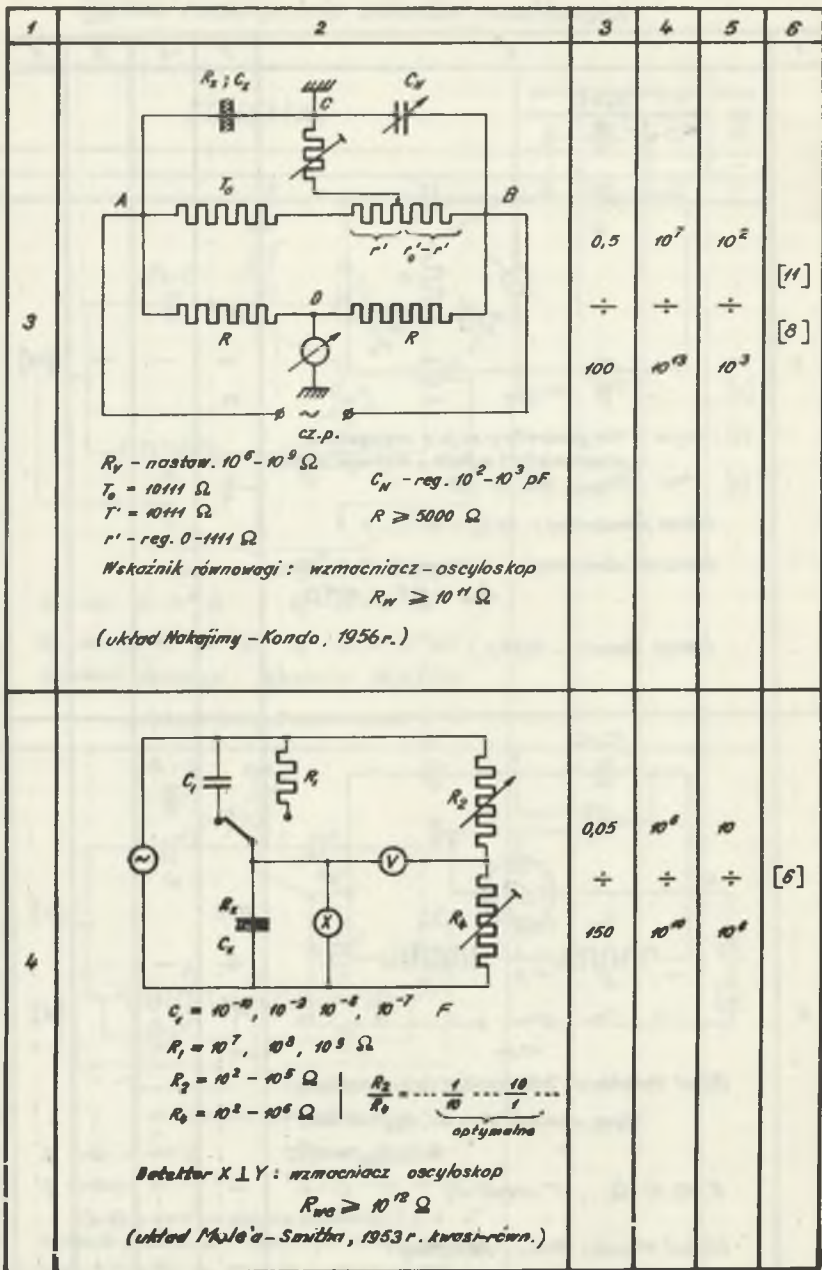 1 2 3 4 5 6
3
Rx ; Cx C CN
A T₀ B
r' r₀'-r'
R 0 R
~
cz.p.
Rγ - nastaw. 10⁶-10⁹ Ω
T₀ = 10111 Ω
T' = 10111 Ω
r' - reg. 0-1111 Ω
CN - reg. 10²-10³ pF
R ⩾ 5000 Ω
Wskaźnik równowagi : wzmacniacz-oscyloskop
RW ⩾ 10¹¹ Ω
(układ Nakajimy-Kondo, 1956r.)
0,5 10⁷ 10²
÷ ÷ ÷
100 10¹³ 10³
[11]
[8]
4
C₁ R₁ R₂
~ V
Rx X R₄
Cx
C₁ = 10⁻¹⁰, 10⁻⁹ 10⁻⁸, 10⁻⁷ F
R₁ = 10⁷, 10⁸, 10⁹ Ω
R₂ = 10² - 10⁵ Ω
R₄ = 10² - 10⁶ Ω
R₂/R₄ = --- 1/10 --- 10/1 ---
optymalne
Detektor X⊥Y : wzmacniacz oscyloskop
Rwe ⩾ 10¹² Ω
(układ Mule'a-Smitha, 1953 r. kwasi-równ.)
0,05 10⁶ 10
÷ ÷ ÷
150 10¹⁰
[6]